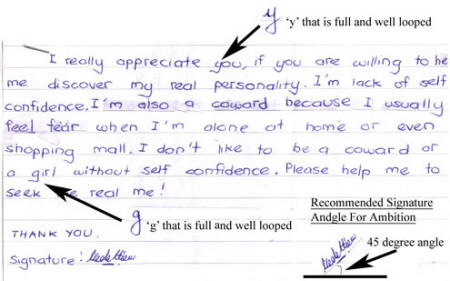 y 'y' that is full and well looped
I really appreciate you, if you are willing to he
me discover my real personality. I'm lack of self
confidence. I'm also a coward because I usually
feel fear when I'm alone at home or even
shopping mall. I don't like to be a coward or
a girl without self confidence. Please help me to
seek e real me!
g 'g' that is full and well looped
Recommended Signature
Andgle For Ambition
THANK YOU.
45 degree angle
Signature: